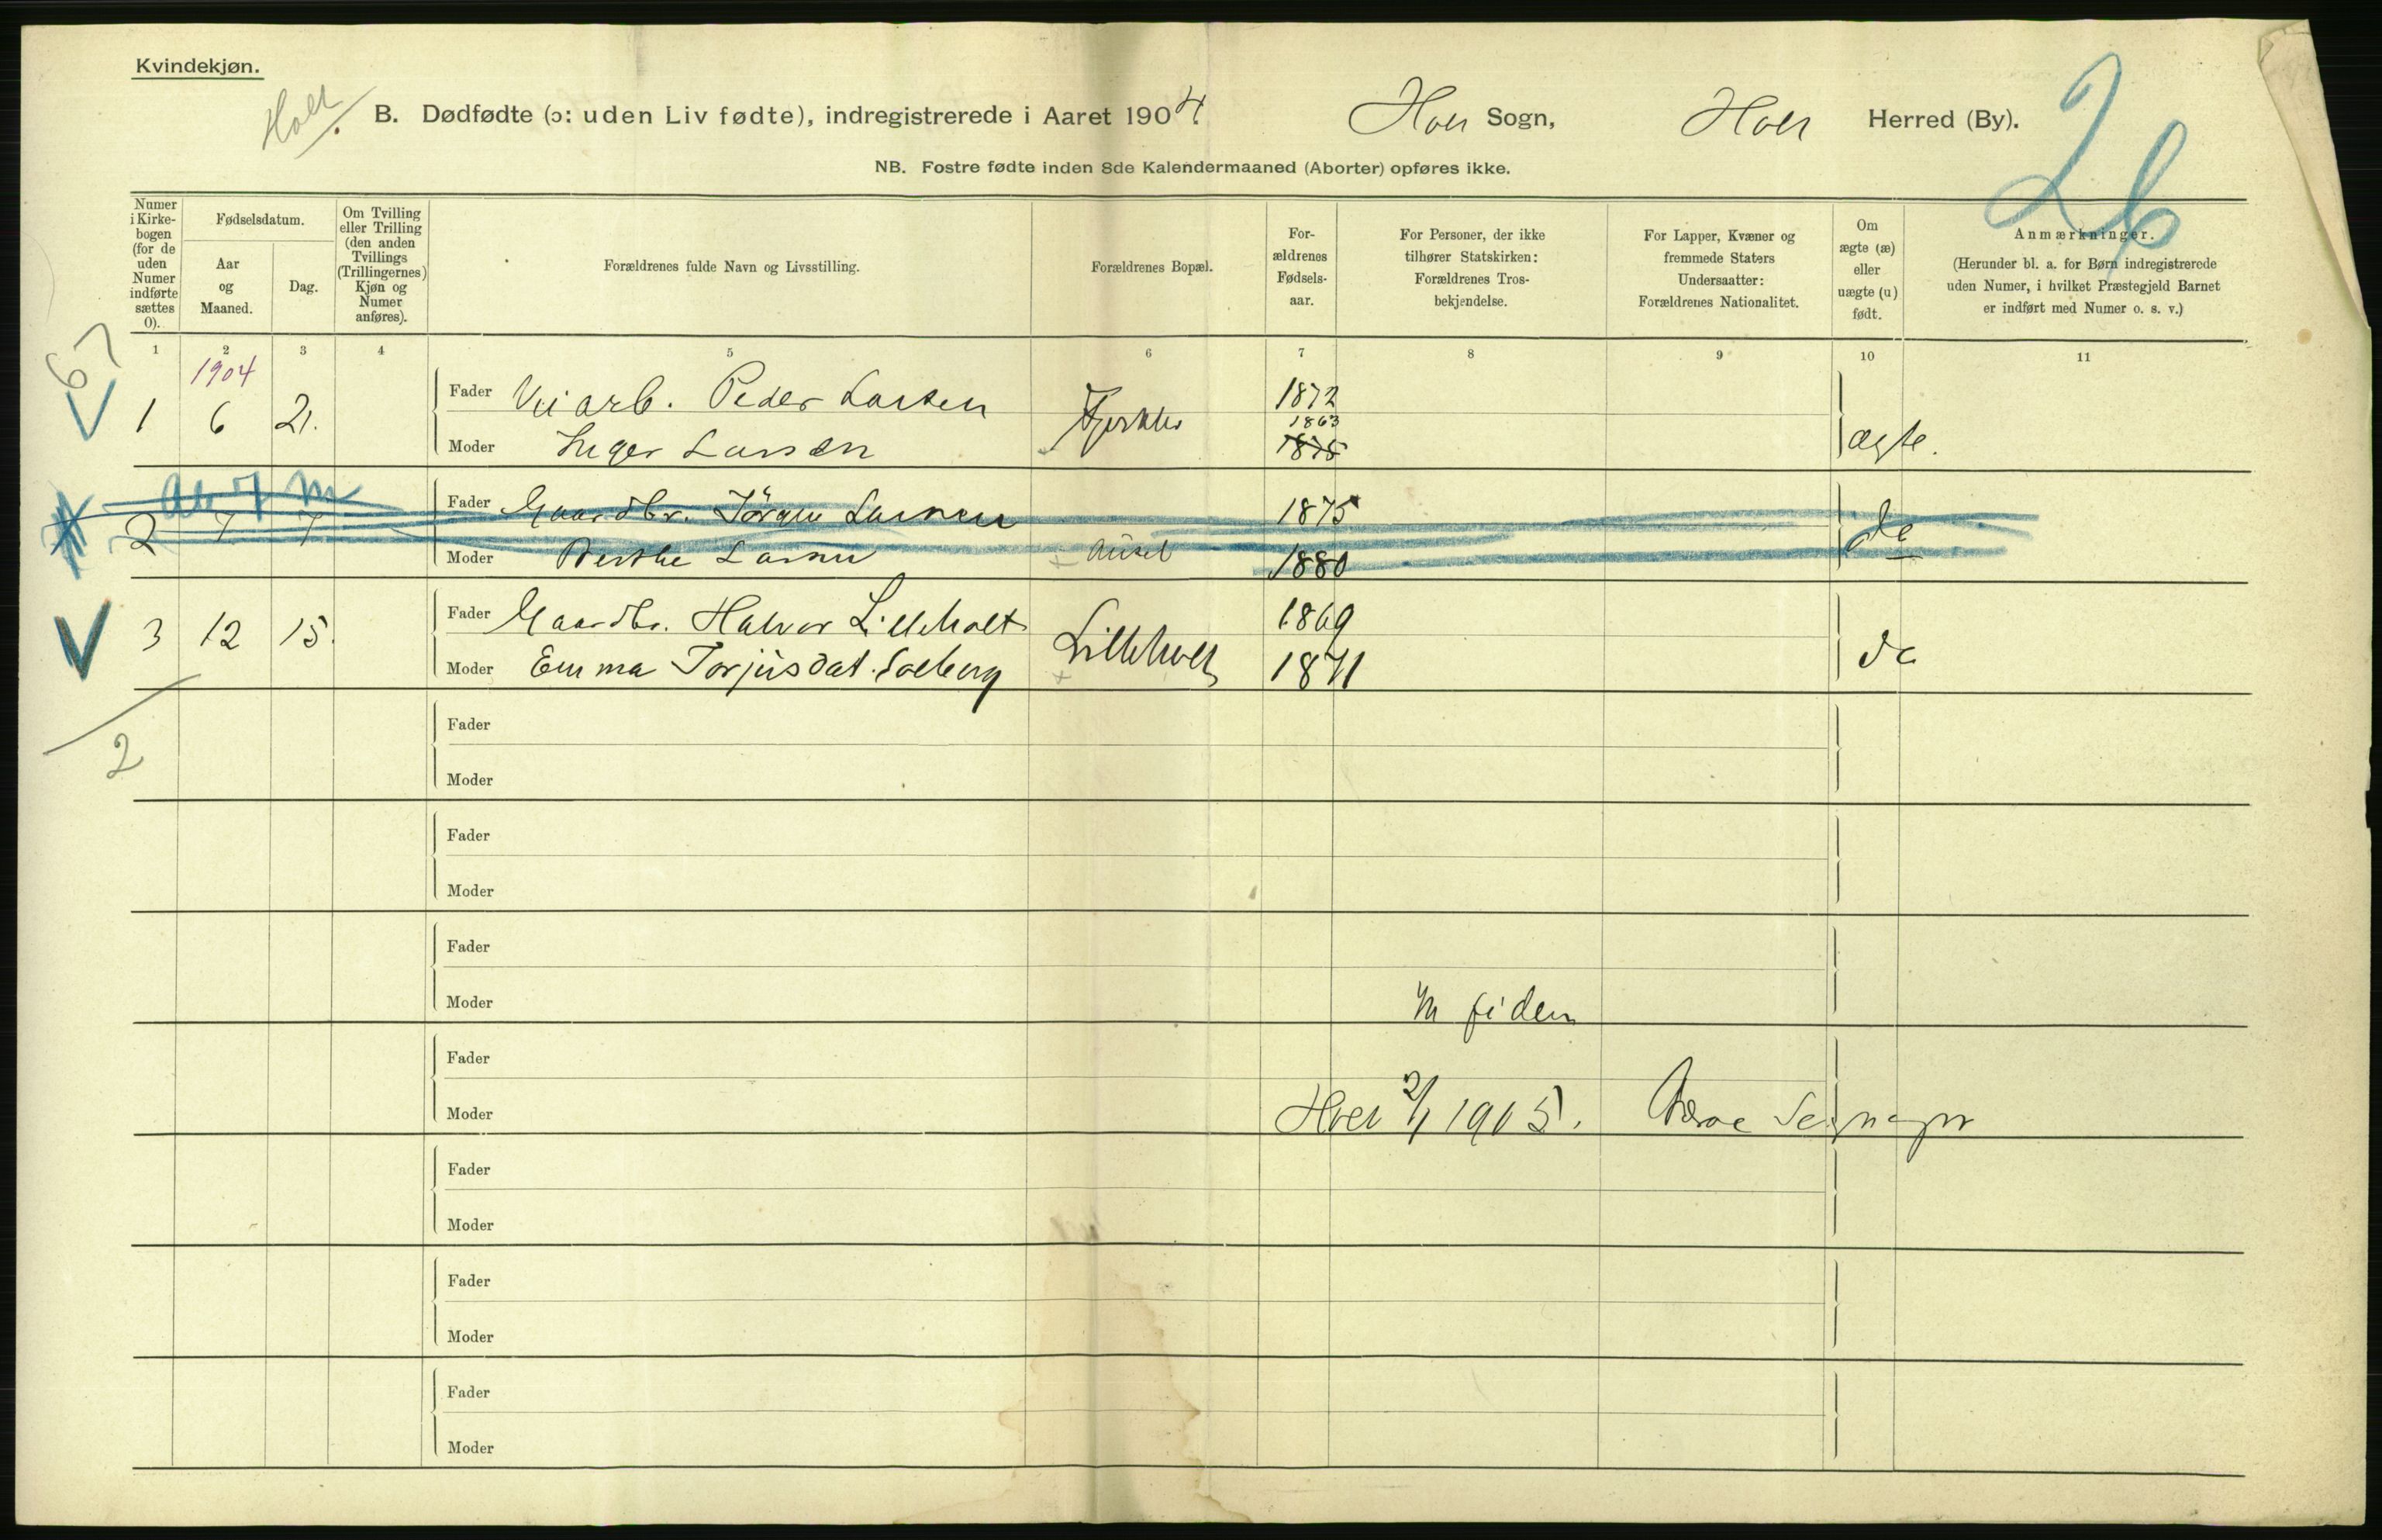 Kvindekjøn.
Holt.
B. Dødfødte (ɔ: uden Liv fødte), indregistrerede i Aaret 1904. Holt Sogn, Holt Herred (By).
26
NB. Fostre fødte inden 8de Kalendermaaned (Aborter) opføres ikke.
Numer i Kirke- bogen (for de uden Numer indførte sættes 0).
Fødselsdatum.
Aar og Maaned.
Dag.
Om Tvilling eller Trilling (den anden Tvillings (Trillingernes) Kjøn og Numer anføres).
Forældrenes fulde Navn og Livsstilling.
Forældrenes Bopæl.
For- ældrenes Fødsels- aar.
For Personer, der ikke tilhører Statskirken: Forældrenes Tros- bekjendelse.
For Lapper, Kvæner og fremmede Staters Undersaatter: Forældrenes Nationalitet.
Om ægte (æ) eller uægte (u) født.
Anmærkninger.
(Herunder bl. a. for Børn indregistrerede uden Numer, i hvilket Præstegjeld Barnet er indført med Numer o. s. v.)
1 2 3 4 5 6 7 8 9 10 11
67
1904
Fader Veiarb. Peder Larsen 1872
1 6 21. ægte.
1863
Moder Inger Larsen 1875
Fader Gaardbr. Jörgen Larsen 1875
2 7 7 do
Moder Berthe Larsen 1880
Fader Gaardbr. Halvor Lilleholt 1869
3 12 15. Lilleholt do
Moder Emma Torjusdat. Solberg 1871
2
Fader
Moder
Fader
Moder
Fader
Moder
in fidem
Fader
Holt 2/1 1905.
Moder
Fader
Moder
Fader
Moder
Fader
Moder